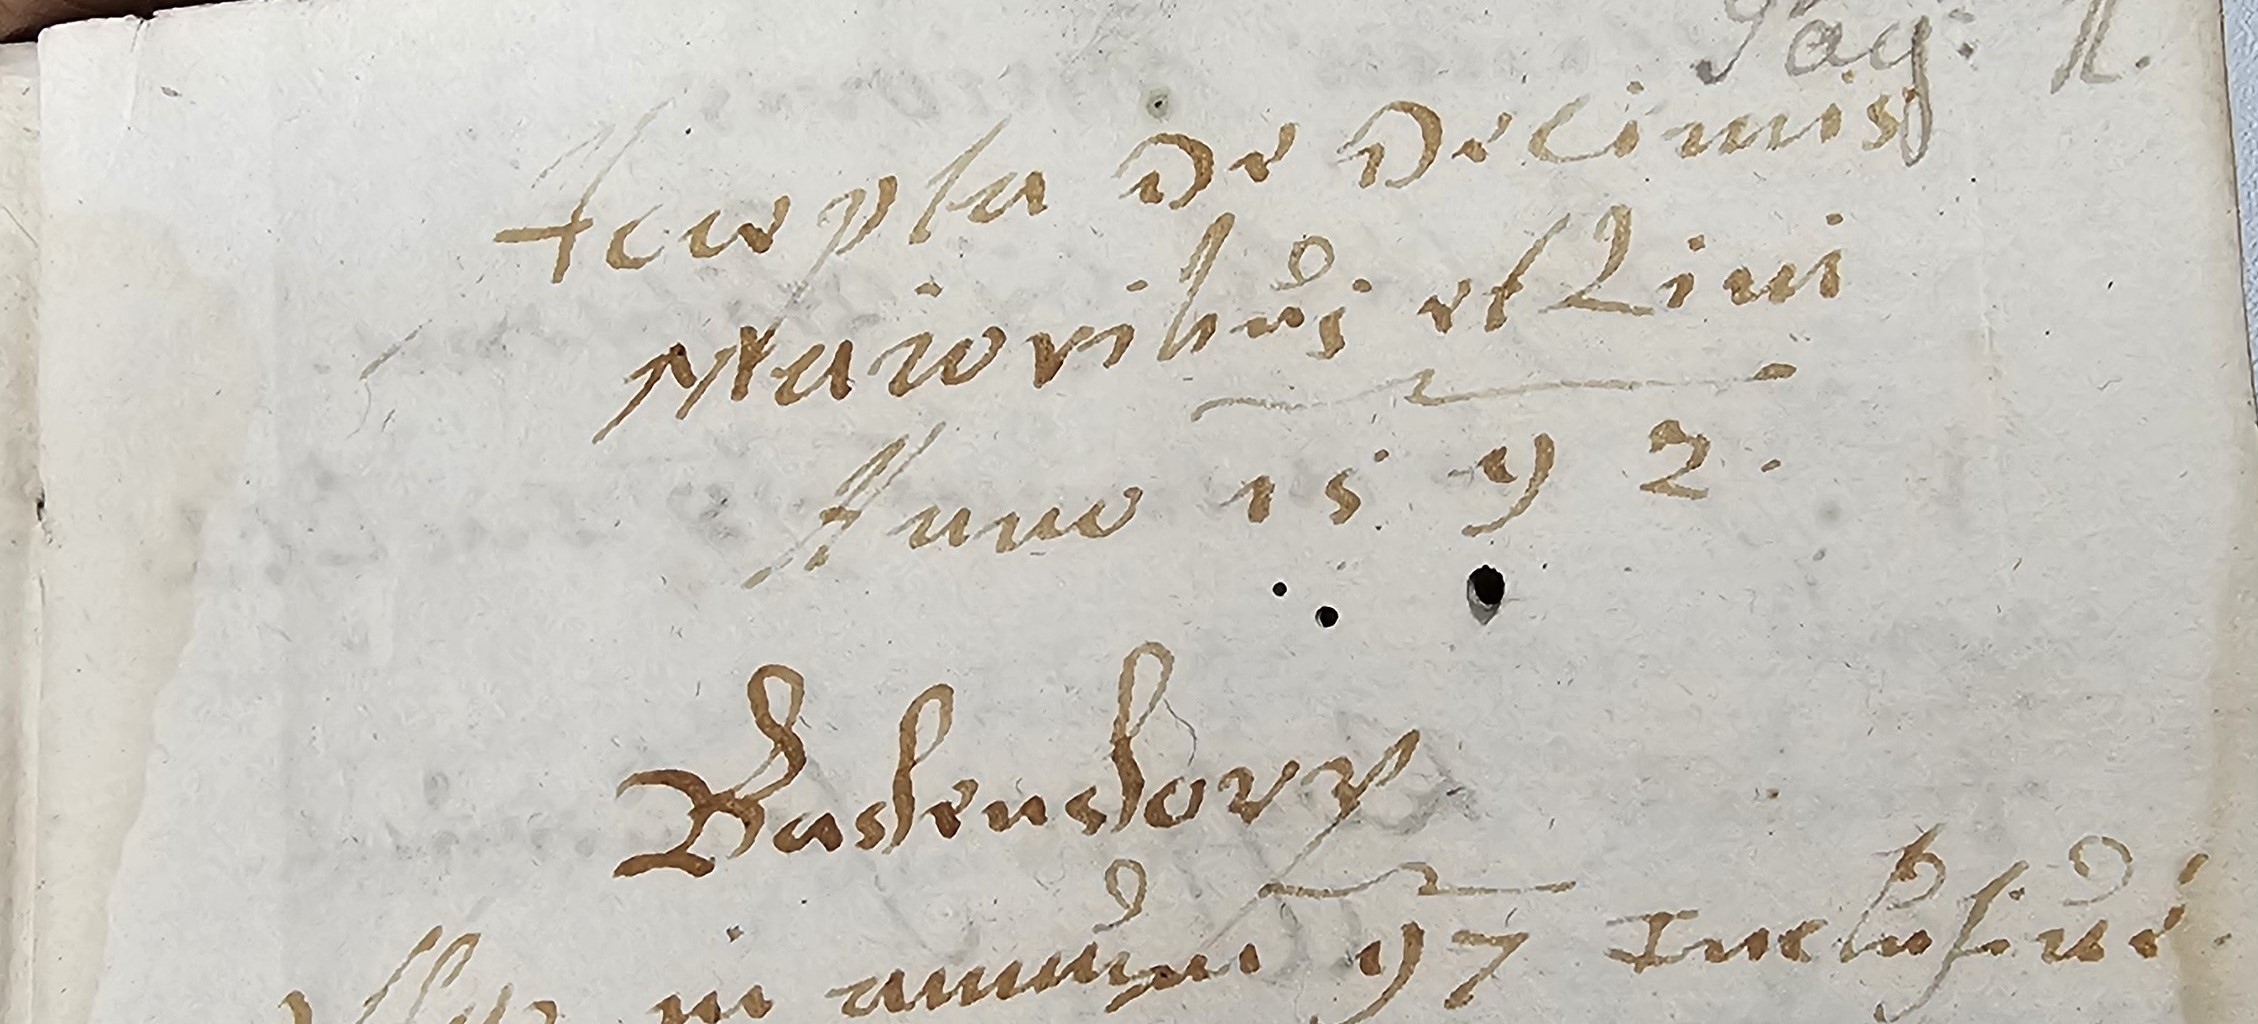 Pag: 1.
Accepta De Decimis
Maioribus et Lini
Anno 1592.
Bastendorp
Usque in annum 97 Inclusive.